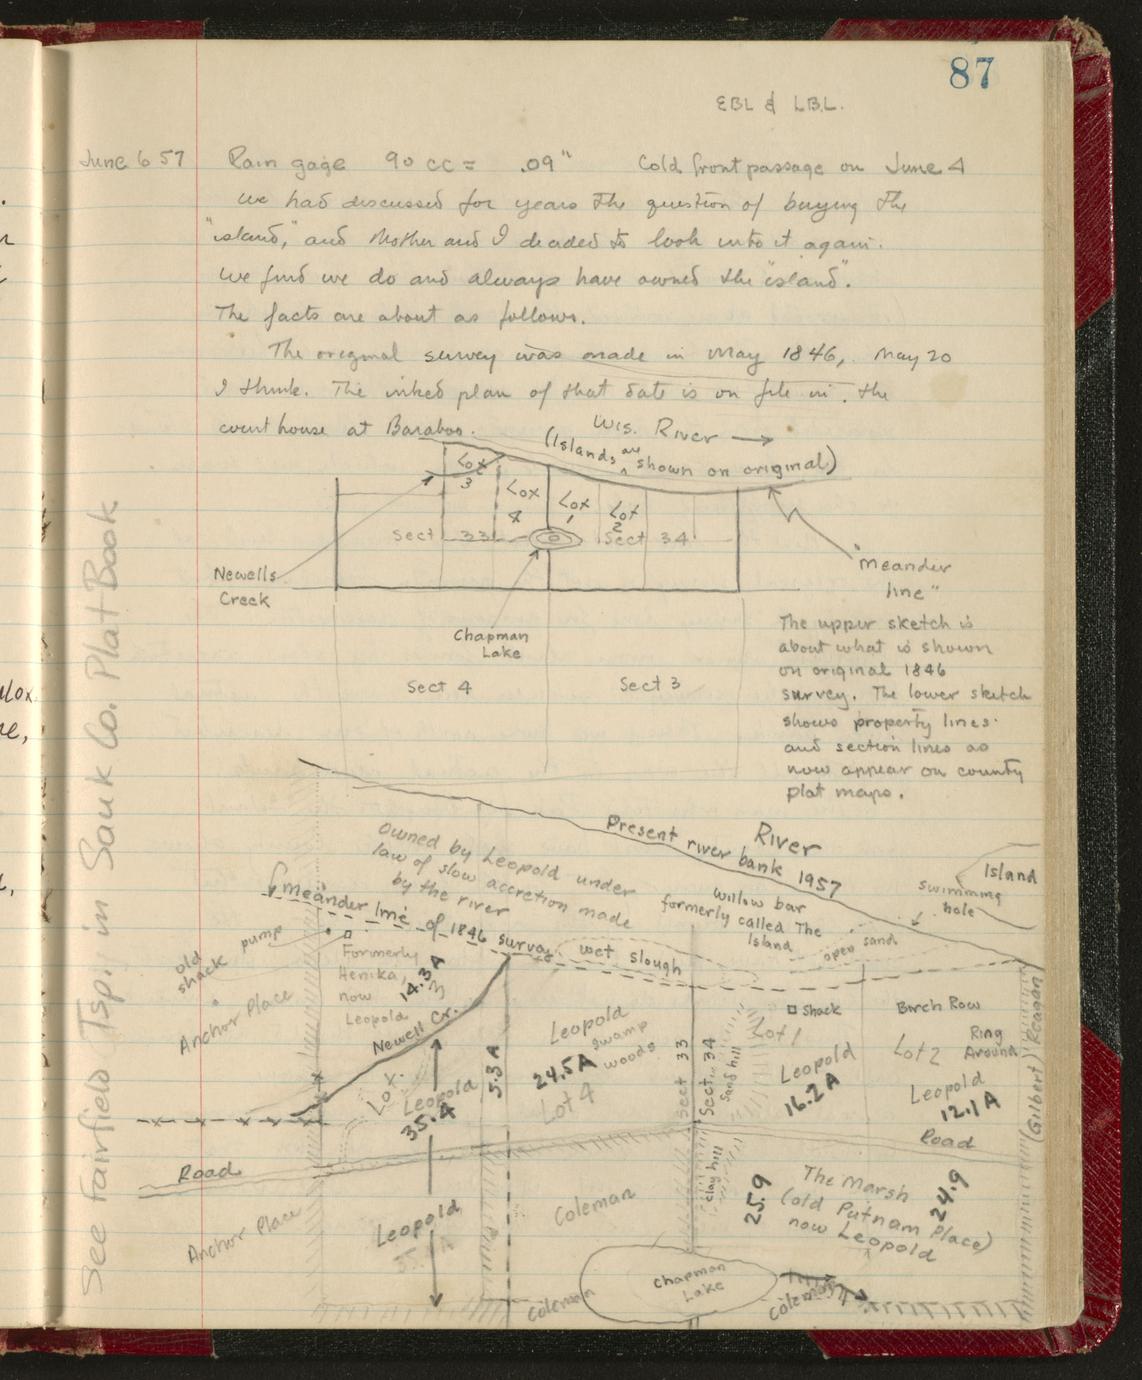 87
EBL & LBL.
June 6 57 Rain gage 90 cc = .09" Cold front passage on June 4
We had discussed for years the question of buying the
"island," and Mother and I decided to look into it again.
We find we do and always have owned the "island".
The facts are about as follows.
The original survey was made in May 1846, May 20
I think. The inked plan of that date is on file in the
court house at Baraboo.
Wis. River →
(Islands are shown on original)
Lot
3
Lot
4
Lot
1
Lot
2
Sect 33
Sect 34
Newells
Creek
"meander
line"
Chapman
Lake
Sect 4
Sect 3
The upper sketch is
about what is shown
on original 1846
survey. The lower sketch
shows property lines
and section lines as
now appear on county
plat maps.
See Fairfield Tsp. in Sauk Co. Plat Book
River
Present river bank 1957
Island
swimming
hole
Owned by Leopold under
law of slow accretion made
by the river
willow bar
formerly called The
Island
open sand
meander line of 1846 survey
wet slough
old
shack
pump
Formerly
Henika,
now
Leopold
14.3 A
Anchor Place
Newell Cr.
Leopold
35.4
5.3 A
Leopold
swamp
woods
24.5 A
Lot 4
Sect 33
Sect 34
Sand hill
Shack
Lot 1
Leopold
16.2 A
Birch Row
Lot 2
Ring
Around
Leopold
12.1 A
(Gilbert) Reagan
Road
Road
Anchor Place
Leopold
Coleman
clay hill
25.9
The Marsh
(old Putnam Place)
now Leopold
24.9
Chapman
Lake
Coleman
Coleman